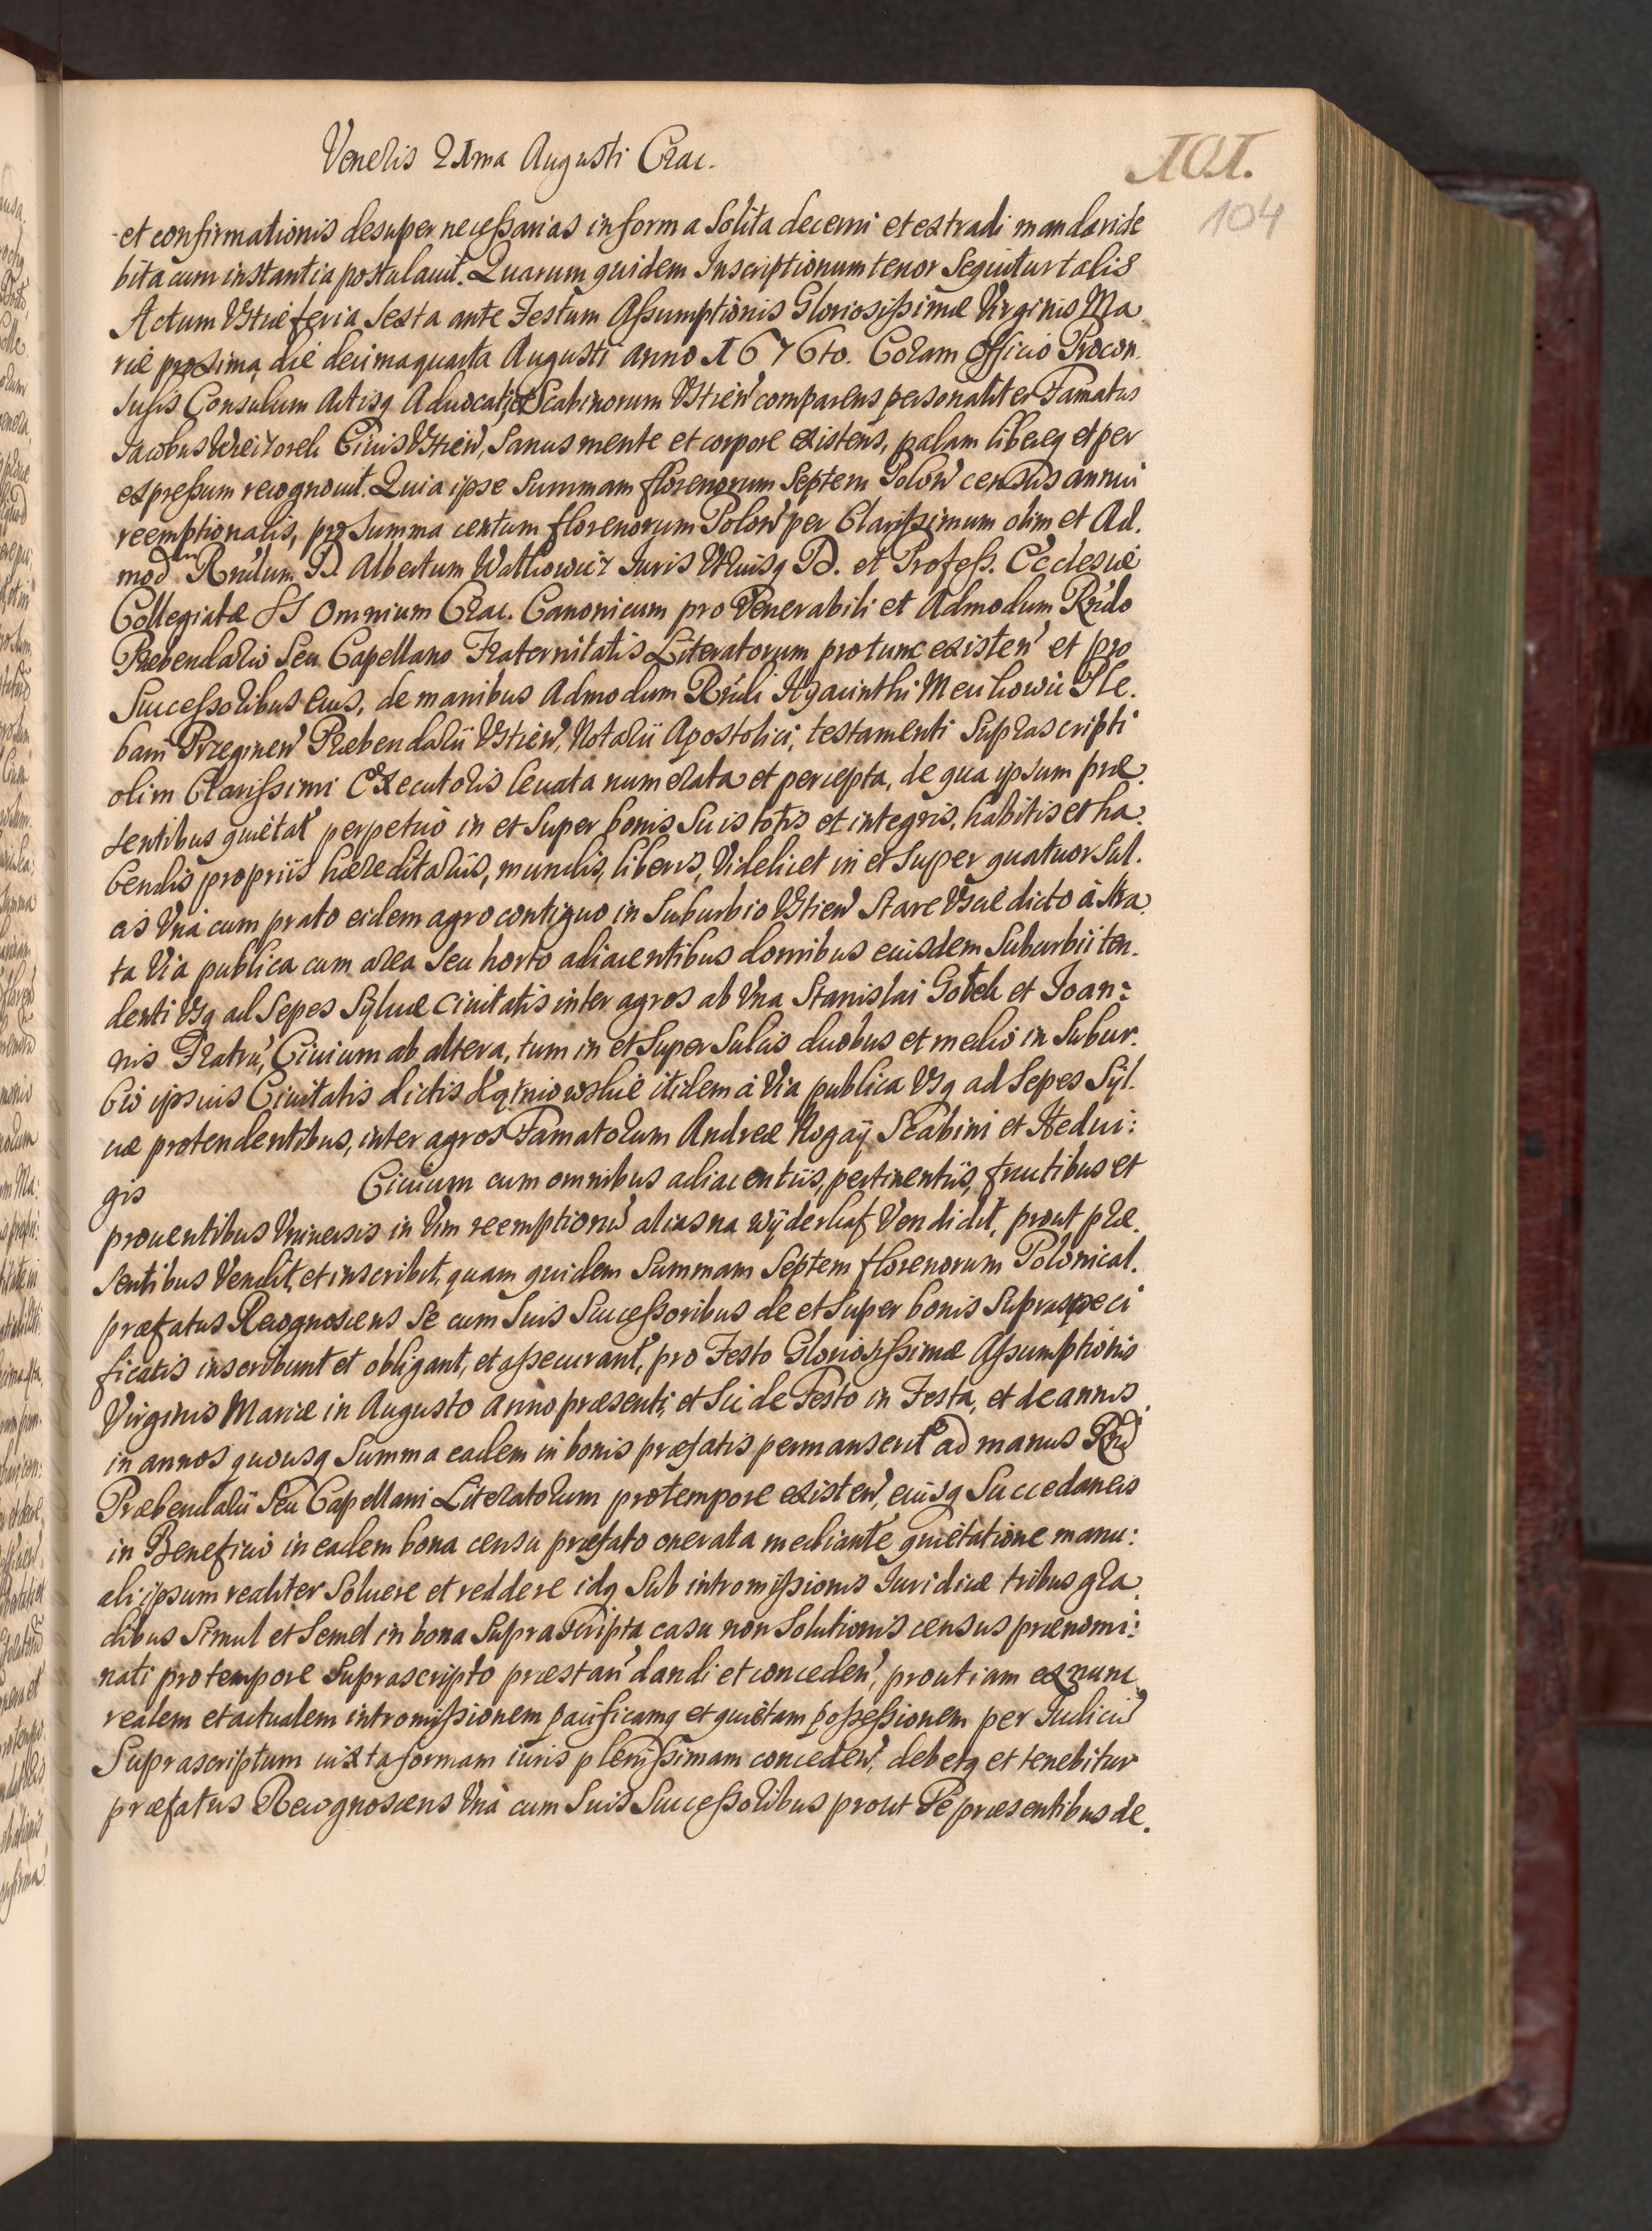 Veneris 21ma Augusti Crac.
101.
104
et confirmationis desuper necessarias in forma Solita decerni et extradi mandari de
bita cum instantia postulauit. Quarum quidem Inscriptionum tenor Sequitur talis
Actum Vstiæ feria Sexta ante Festum Assumptionis Gloriosissimæ Virginis Ma
riæ proxima, die decima quarta Augusti anno 1676to. Coram Officio Procon
Sulis Consulum Actisq Aduocati, et Scabinorum Vstien comparens personaliter Famatus
Jacobus Ciuis Vstien, Sanus mente et corpore existens, palam libereq et per
expressum recognouit. Quia ipse Summam florenorum Septem Polon census annui
reemptionalis, pro Summa centum florenorum Polon per Clarissimum olim et Ad.
mod. Rndum D. Albertum Juris Vtriusq D. et Profess. Ecclesiæ
Collegiatæ SS Omnium Crac. Canonicum pro Venerabili et Admodum Rndo
Præbendario Seu Capellano Fraternitatis Literatorum protunc existen et pro
Successoribus eius, de manibus Admodum Rndi Hyacinthi Ple.
bani Przeginen Præbendarii Vstien, Notarii Apostolici, testamenti Suprascripti
olim Clarissimi Executoris leuata numerata et percepta, de qua ipsum præ
sentibus quietat perpetuo in et Super bonis Suis totis et integris, habitis et ha
bendis propriis hæreditariis, mundis, liberis, Videlicet in et Super quatuor Sul.
cis Vna cum prato eidem agro contiguo in Suburbio Vstien Stare Vscie dicto à Stra
ta Via publica cum area Seu horto adiacentibus domibus eiusdem Suburbii ten.
denti Vsq ad Sepes Syluæ Ciuitatis inter agros ab Vna Stanislai et Joan:
nis Fratru, Ciuium ab altera, tum in et Super Sulcis duobus et medio in Subur.
bio ipsius Ciuitatis dictis itidem à Via publica Vsq ad Sepes Syl.
uæ protendentibus, inter agros Famatorum Andreæ Rogaÿ Scabini et Hedui:
gis Ciuium cum omnibus adiacentiis, pertinentiis, fructibus et
prouentibus Vniuersis in Vim reemptionis alias na wÿderkaf Vendidit, prout præ
sentibus Vendit, et inscribit, quam quidem Summam Septem florenorum Polonical.
præfatus Recognoscens Se cum Suis Successoribus de et Super bonis Supraspeci
ficatis inscribunt et obligant, et assecurant, pro Festo Gloriosissimæ Assumptionis
Virginis Mariæ in Augusto Anno præsenti, et Sic de Festo in Festa, et de annis
in annos quousq Summa eadem in bonis præfatis permanserit ad manus Rnd
Præbendarii Seu Capellani Literatorum protempore existen, eiusq Succedaneis
in Beneficio in eadem bona censu præfato onerata mediante quietatione manu:
ali ipsum realiter Soluere et reddere idq Sub intromissionis Juridicæ tribus gra
dibus Simul et Semel in bona Suprascripta casu non Solutionis census prænomi:
nati protempore Suprascripto præstan dandi et conceden, prout iam ex nunc
realem et actualem intromissionem pacificamq et quietam possessionem per Judiciu
Suprascriptum iuxta formam iuris plenissimam conceden, debetq et tenebitur
præfatus Recognoscens Vnà cum Suis Successoribus prout Se præsentibus de.